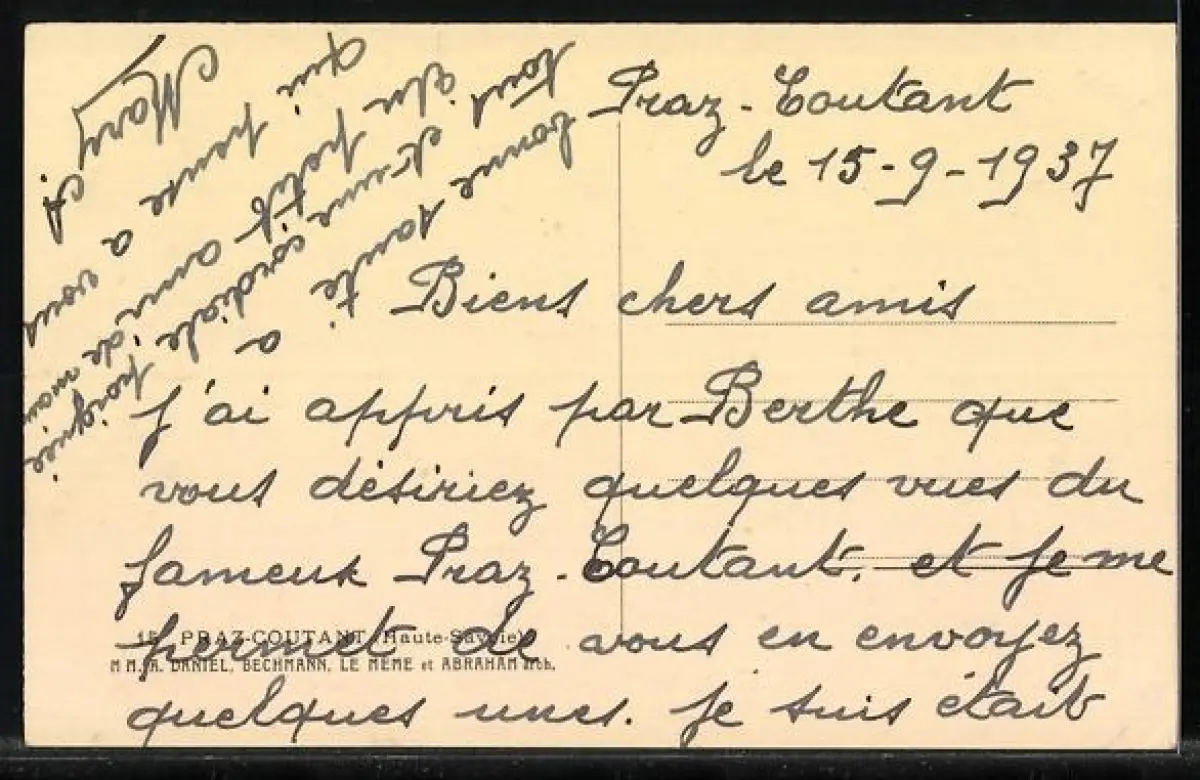 Praz-Coutant
le 15-9-1937
Biens chers amis
J'ai appris par Berthe que
vous désiriez quelques vues du
fameux Praz-Coutant. et je me
permet de vous en envoyez
quelques unes. Je suis était
bonne santé à
tous et une cordiale poignée
du petit ami de main
qui pense a vous
Mary A
15. PRAZ-COUTANT (Haute-Savoie)
M M. A. DANIEL, BECHMANN, LE MÊME et ABRAHAM arch.